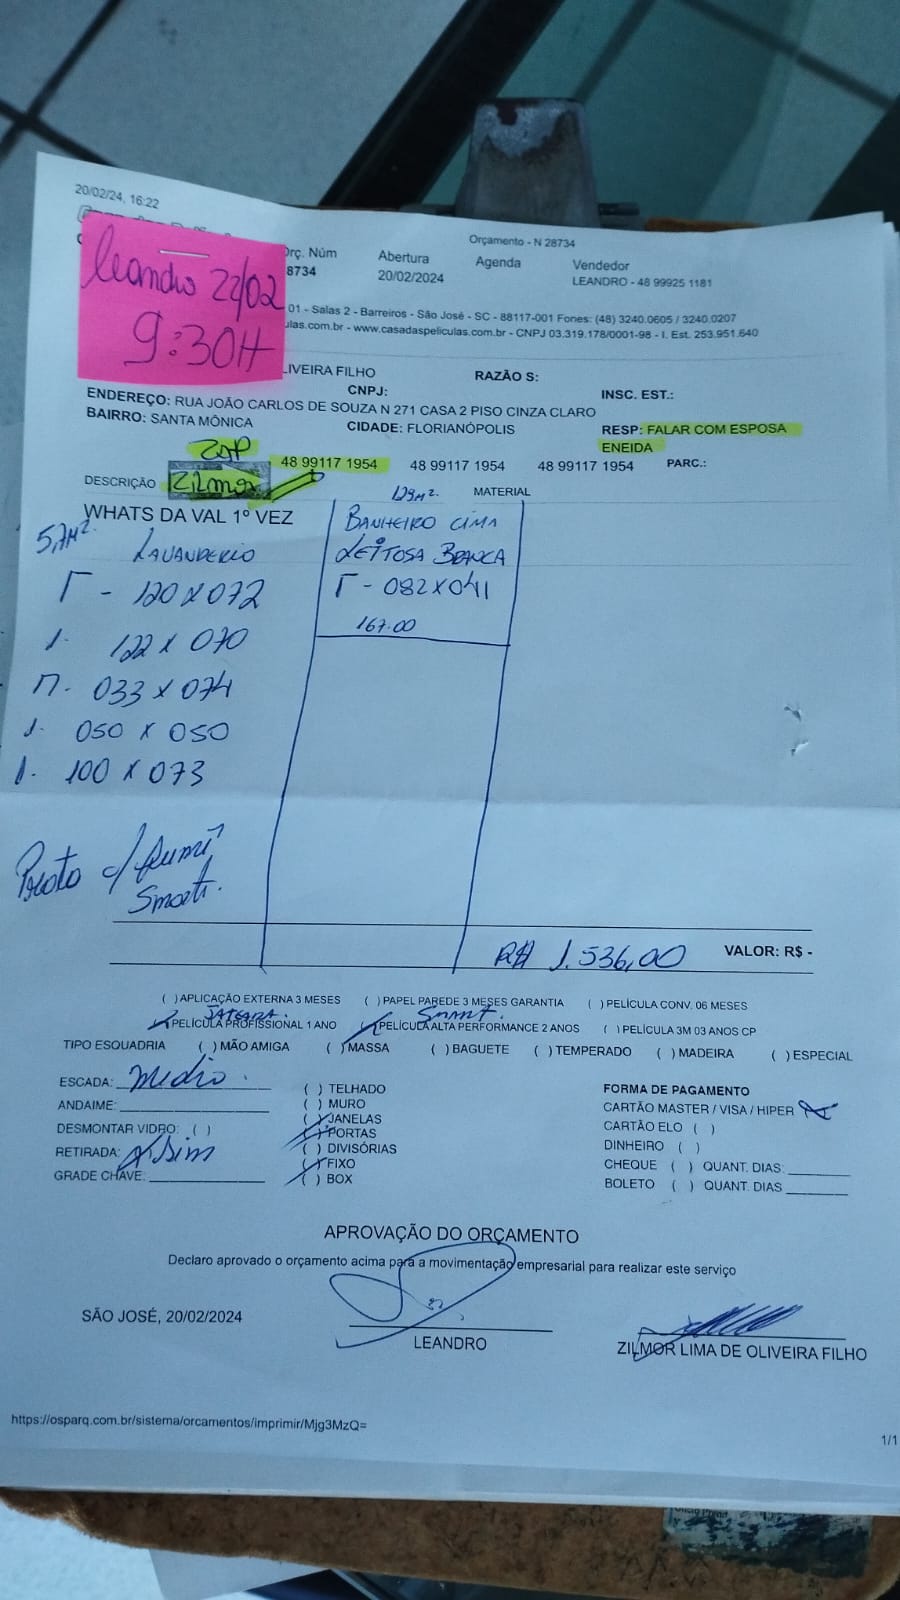 20/02/24, 16:22
Orçamento - N 28734
leandro 22/02
9:30H
Orç. Núm
8734
Abertura
20/02/2024
Agenda
Vendedor
LEANDRO - 48 99925 1181
01 - Salas 2 - Barreiros - São José - SC - 88117-001 Fones: (48) 3240.0605 / 3240.0207
ulas.com.br - www.casadaspeliculas.com.br - CNPJ 03.319.178/0001-98 - I. Est. 253.951.640
LIVEIRA FILHO
RAZÃO S:
CNPJ:
INSC. EST.:
ENDEREÇO: RUA JOÃO CARLOS DE SOUZA N 271 CASA 2 PISO CINZA CLARO
BAIRRO: SANTA MÔNICA
CIDADE: FLORIANÓPOLIS
RESP: FALAR COM ESPOSA
ENEIDA
ZAP
48 99117 1954
48 99117 1954
48 99117 1954
PARC.:
DESCRIÇÃO
Zilmor
MATERIAL
WHATS DA VAL 1º VEZ
5,7M².
LAVANDERIO
- 120 X 072
1. 122 X 070
033 X 074
1. 050 X 050
1. 100 X 073
BANHEIRO CIMA
LEITOSA BRANCA
- 082 X 041
167.00
Smart.
R$ 1.536,00
VALOR: R$ -
( ) APLICAÇÃO EXTERNA 3 MESES
( ) PAPEL PAREDE 3 MESES GARANTIA
( ) PELÍCULA CONV. 06 MESES
SMART.
PELÍCULA PROFISSIONAL 1 ANO
PELÍCULA ALTA PERFORMANCE 2 ANOS
( ) PELÍCULA 3M 03 ANOS CP
TIPO ESQUADRIA
( ) MÃO AMIGA
( ) MASSA
( ) BAGUETE
( ) TEMPERADO
( ) MADEIRA
( ) ESPECIAL
ESCADA: Medio.
ANDAIME:
DESMONTAR VIDRO: ( )
RETIRADA: X Sim
GRADE CHAVE:
( ) TELHADO
( ) MURO
( ) JANELAS
( ) PORTAS
( ) DIVISÓRIAS
( ) FIXO
( ) BOX
FORMA DE PAGAMENTO
CARTÃO MASTER / VISA / HIPER
CARTÃO ELO ( )
DINHEIRO ( )
CHEQUE ( ) QUANT. DIAS:
BOLETO ( ) QUANT. DIAS
APROVAÇÃO DO ORÇAMENTO
Declaro aprovado o orçamento acima para a movimentação empresarial para realizar este serviço
SÃO JOSÉ, 20/02/2024
LEANDRO
ZILMOR LIMA DE OLIVEIRA FILHO
https://osparq.com.br/sistema/orcamentos/imprimir/Mjg3MzQ=
1/1